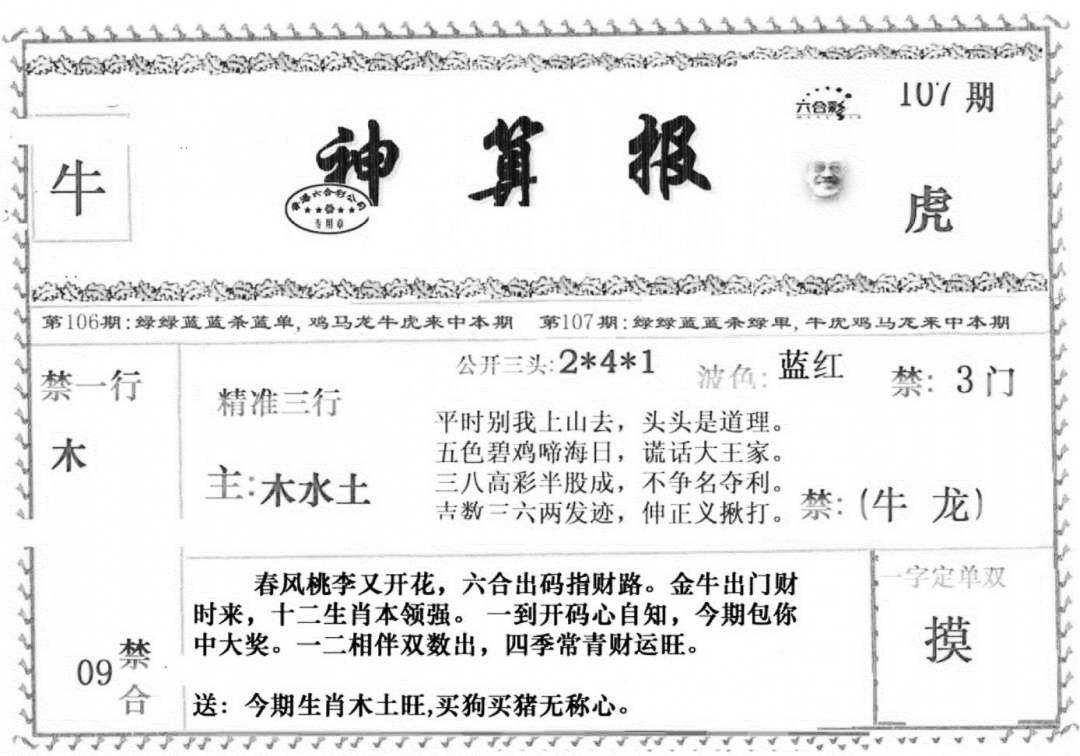 六合彩
107 期
牛
神算报
香港六合彩公司
专用章
虎
第106期:绿绿蓝蓝杀蓝单,鸡马龙牛虎来中本期
第107期:绿绿蓝蓝杀绿单,牛虎鸡马龙来中本期
禁一行
木
精准三行
主:木水土
公开三头:2*4*1
波色:蓝红
禁: 3门
平时别我上山去，头头是道理。
五色碧鸡啼海日，谎话大王家。
三八高彩半股成，不争名夺利。
吉数三六两发迹，伸正义揪打。
禁:(牛 龙)
09
禁合
春风桃李又开花，六合出码指财路。金牛出门财
时来，十二生肖本领强。 一到开码心自知，今期包你
中大奖。一二相伴双数出，四季常青财运旺。
送：今期生肖木土旺,买狗买猪无称心。
一字定单双
摸